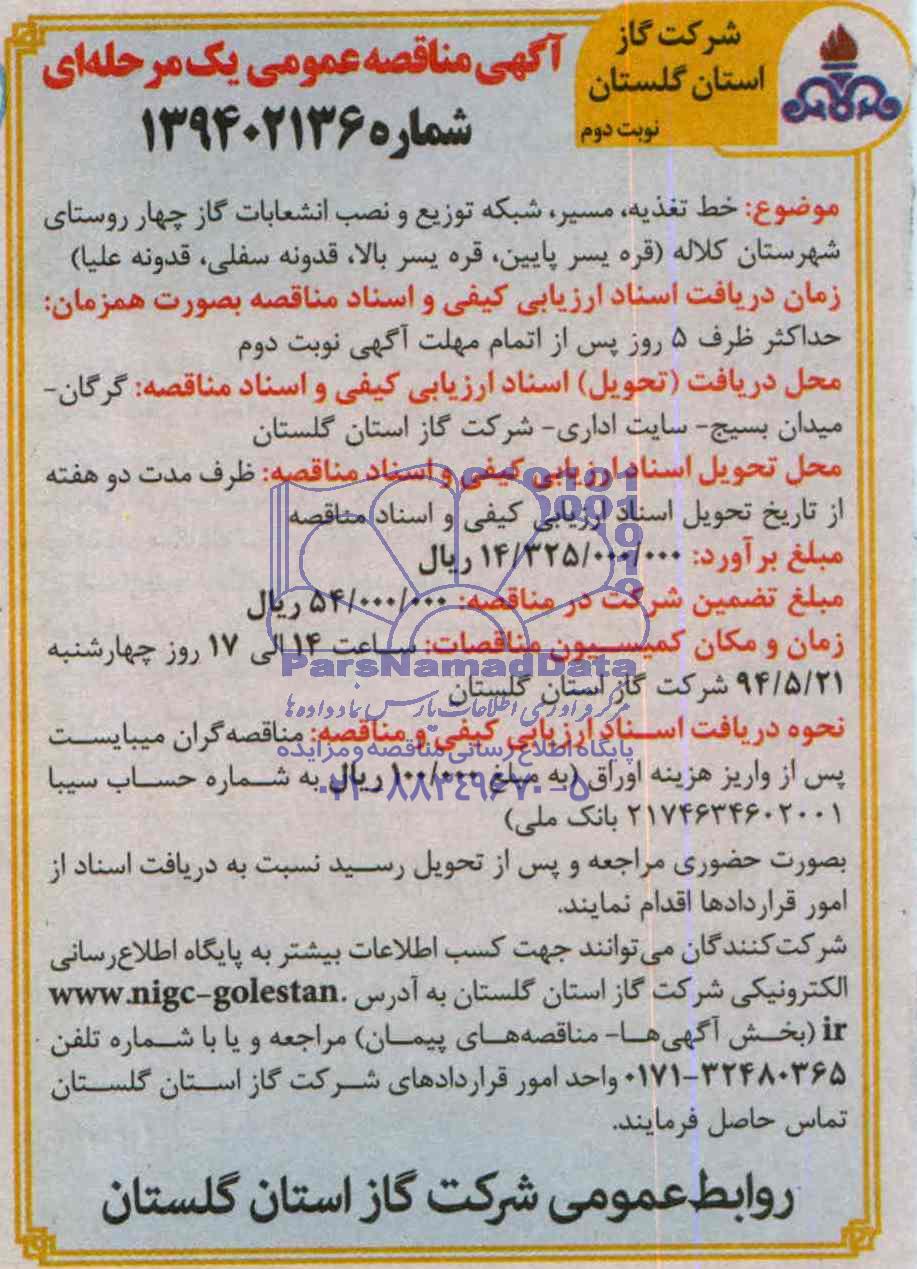 شرکت گاز
استان گلستان
نوبت دوم
آگهی مناقصه عمومی یک مرحله‌ای
شماره ۱۳۹۴۰۲۱۳۶
موضوع: خط تغذیه، مسیر، شبکه توزیع و نصب انشعابات گاز چهار روستای
شهرستان کلاله (قره یسر پایین، قره یسر بالا، قدونه سفلی، قدونه علیا)
زمان دریافت اسناد ارزیابی کیفی و اسناد مناقصه بصورت همزمان:
حداکثر ظرف ۵ روز پس از اتمام مهلت آگهی نوبت دوم
محل دریافت (تحویل) اسناد ارزیابی کیفی و اسناد مناقصه: گرگان-
میدان بسیج- سایت اداری- شرکت گاز استان گلستان
محل تحویل اسناد ارزیابی کیفی و اسناد مناقصه: ظرف مدت دو هفته
از تاریخ تحویل اسناد ارزیابی کیفی و اسناد مناقصه
مبلغ برآورد: ۱۴/۳۲۵/۰۰۰/۰۰۰ ریال
مبلغ تضمین شرکت در مناقصه: ۵۴/۰۰۰/۰۰۰ ریال
زمان و مکان کمیسیون مناقصات: ساعت ۱۴ الی ۱۷ روز چهارشنبه
۹۴/۵/۲۱ شرکت گاز استان گلستان
نحوه دریافت اسناد ارزیابی کیفی و مناقصه: مناقصه‌گران میبایست
پس از واریز هزینه اوراق (به مبلغ ۱۰۰/۰۰۰ ریال به شماره حساب سیبا
۲۱۷۴۶۳۴۶۰۲۰۰۱ بانک ملی)
بصورت حضوری مراجعه و پس از تحویل رسید نسبت به دریافت اسناد از
امور قراردادها اقدام نمایند.
شرکت‌کنندگان می‌توانند جهت کسب اطلاعات بیشتر به پایگاه اطلاع‌رسانی
الکترونیکی شرکت گاز استان گلستان به آدرس www.nigc-golestan.
ir (بخش آگهی‌ها- مناقصه‌های پیمان) مراجعه و یا با شماره تلفن
۰۱۷۱-۳۲۴۸۰۳۶۵ واحد امور قراردادهای شرکت گاز استان گلستان
تماس حاصل فرمایند.
روابط عمومی شرکت گاز استان گلستان
ParsNamadData
مرکز فرآوری اطلاعات پارس نماد داده‌ها
پایگاه اطلاع رسانی مناقصه و مزایده
۰۲۱-۸۸۳۴۹۶۷۰-۵